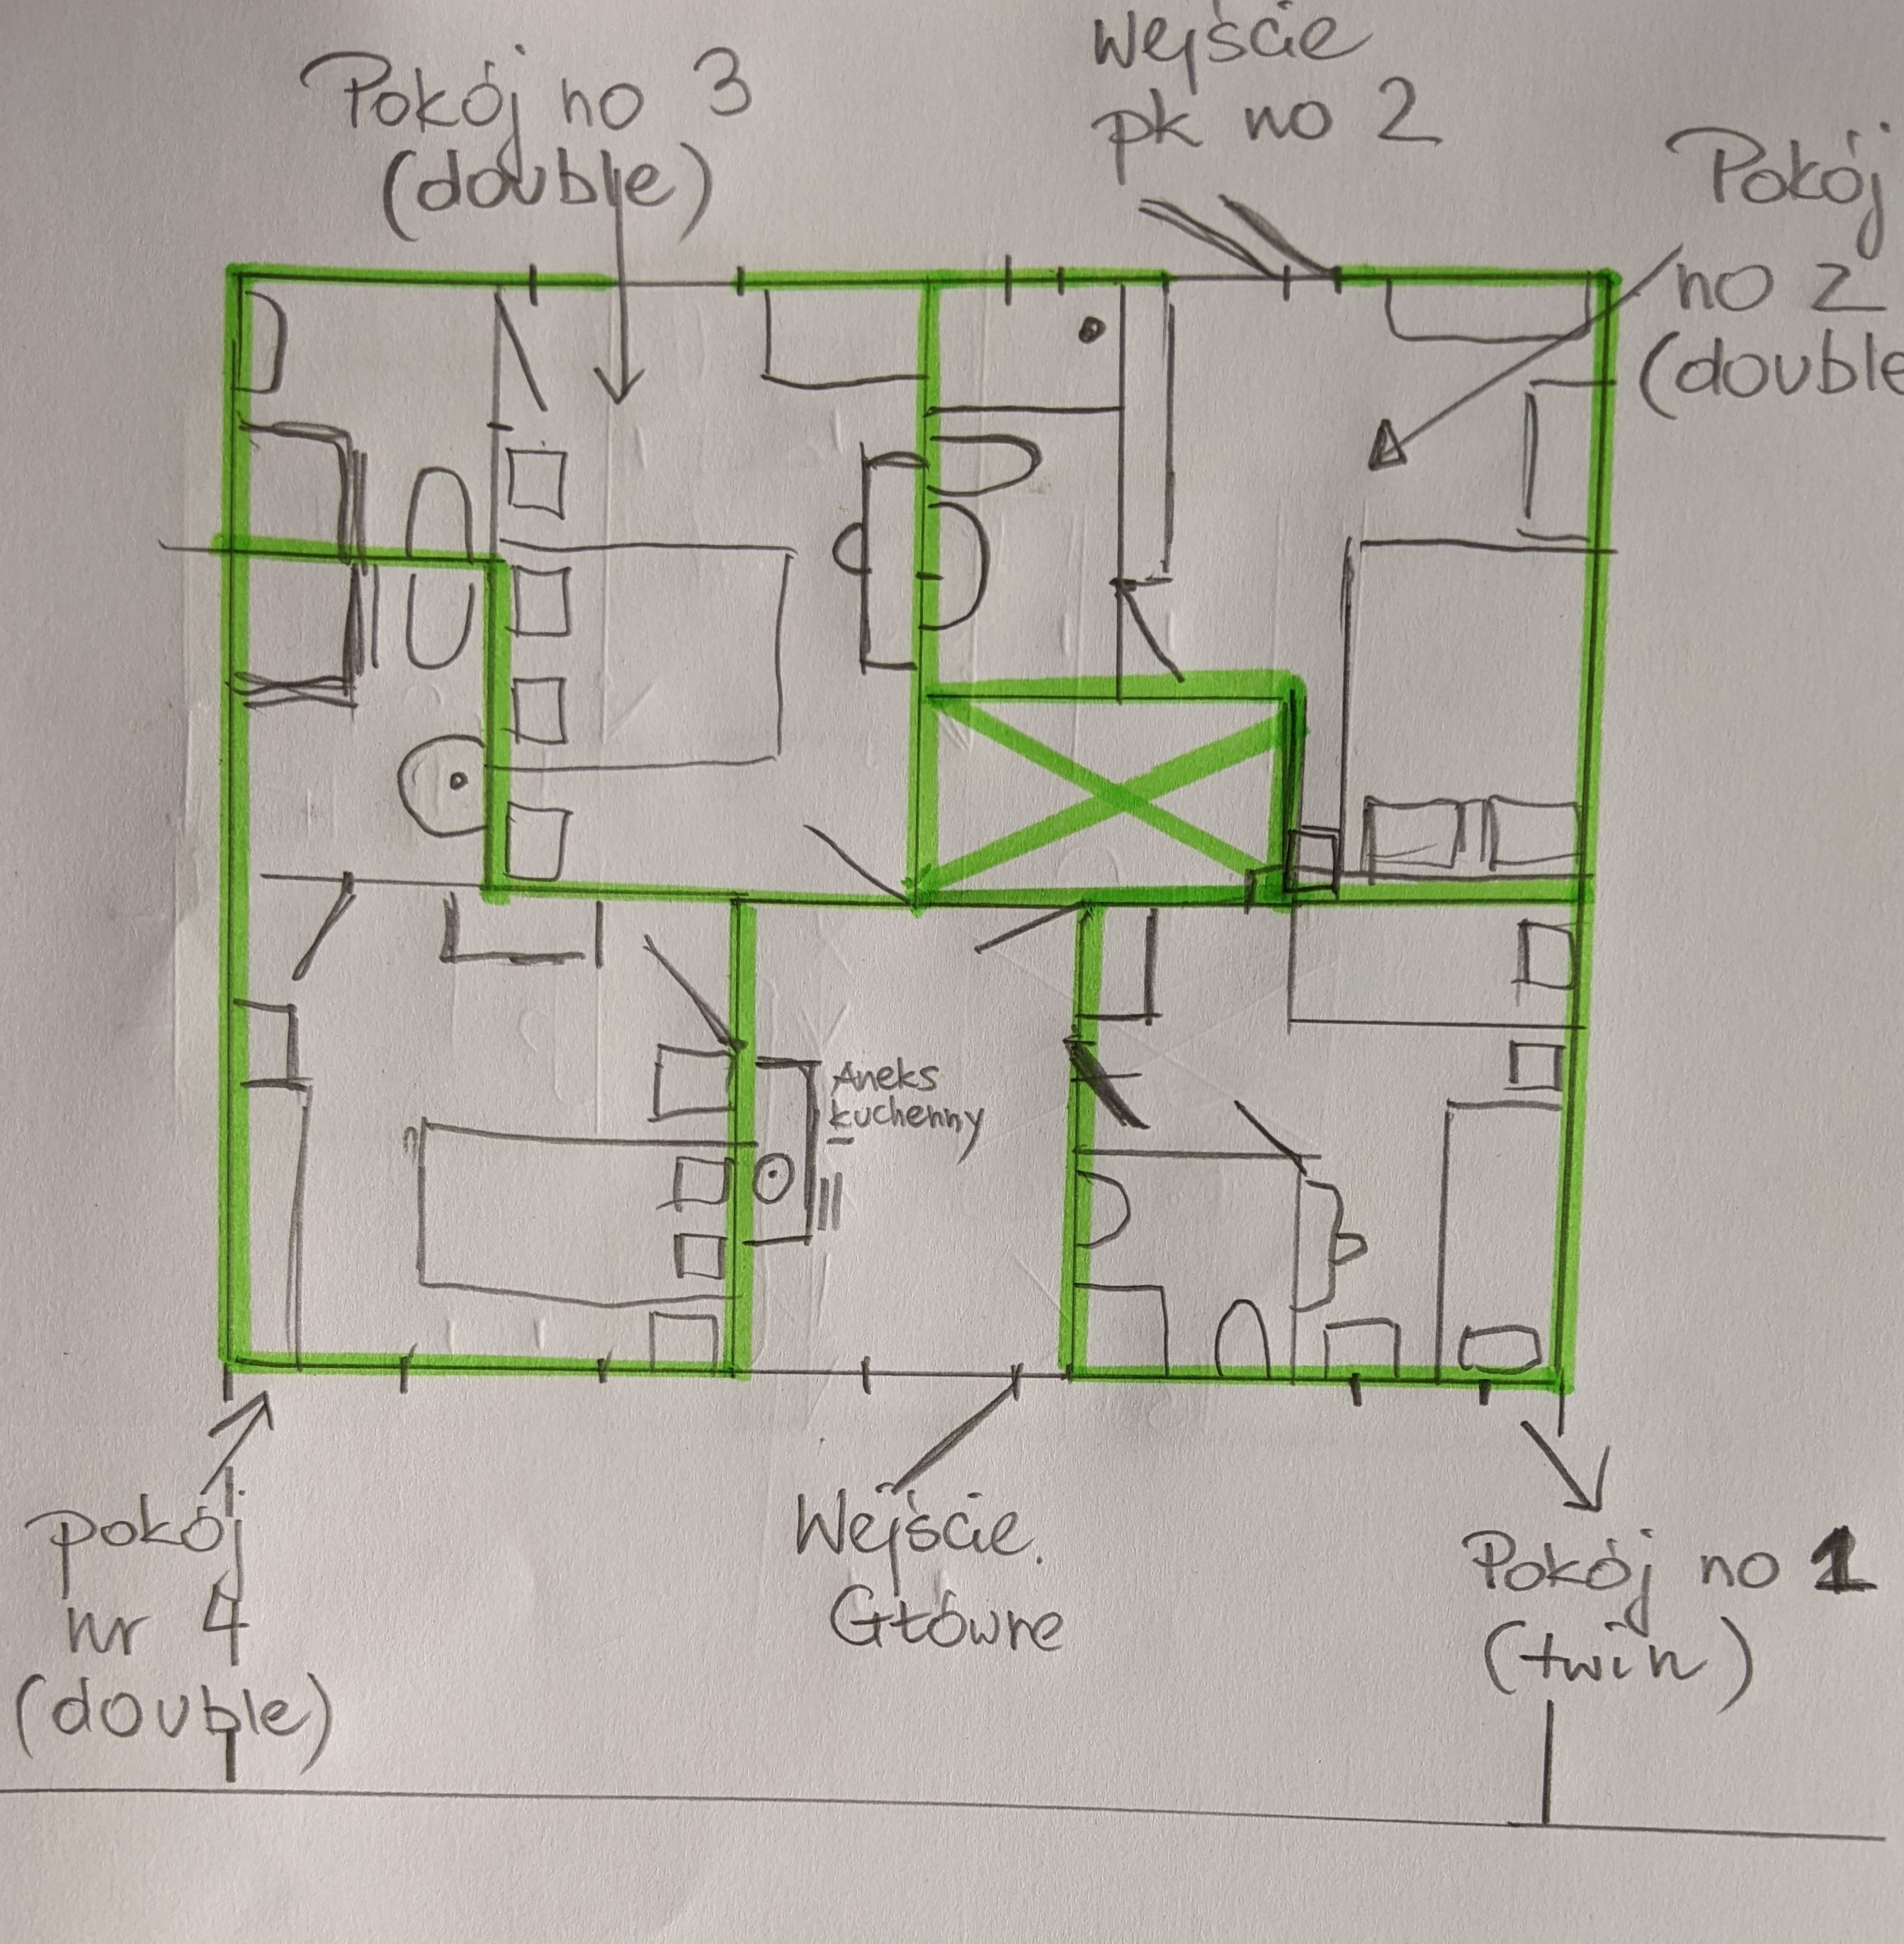 Pokój no 3
(double)
Wejście
pk no 2
Pokój
no 2
(double
Aneks
kuchenny
pokój
nr 4
(double)
Wejście.
Główne
Pokój no 1
(twin)